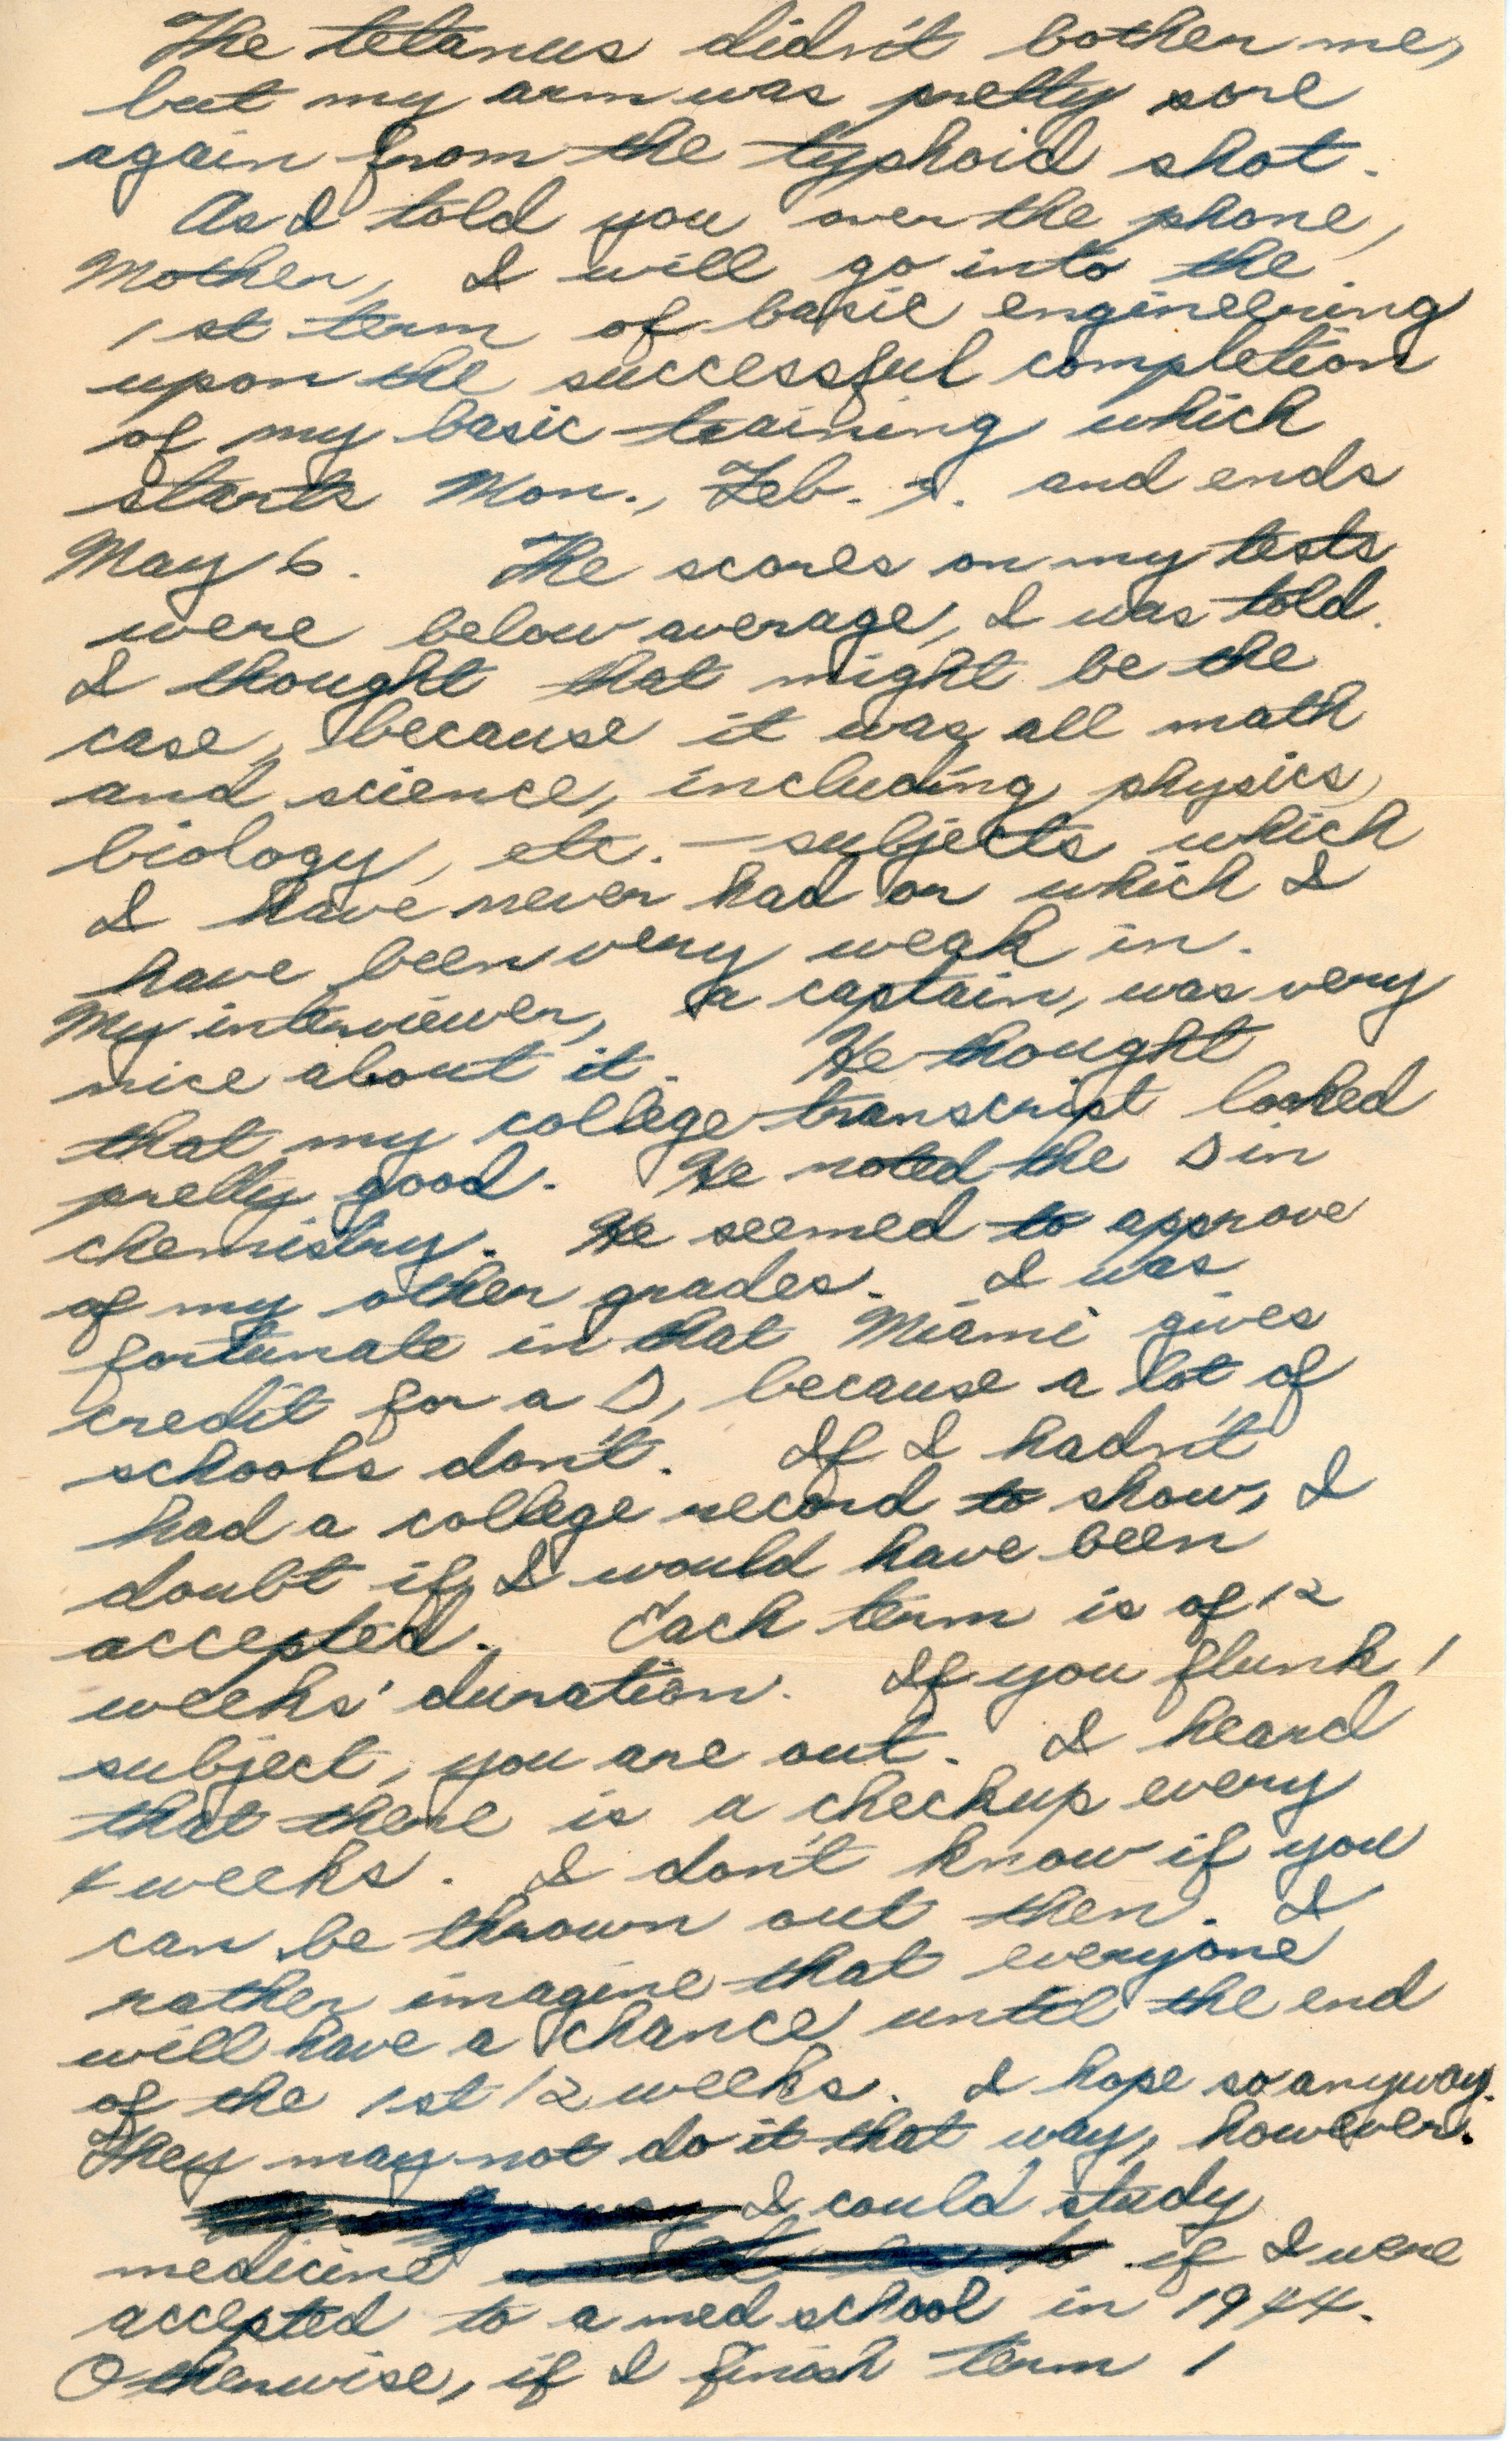 The tetanus didn't bother me,
but my arm was pretty sore
again from the typhoid shot.
As I told you over the phone,
Mother, I will go into the
1st term of basic engineering
upon the successful completion
of my basic training which
starts Mon., Feb. 7. and ends
May 6. The scores on my tests
were below average, I was told.
I thought that might be the
case, because it was all math
and science, including physics,
biology, etc. — subjects which
I have never had or which I
have been very weak in.
My interviewer, a captain, was very
nice about it. He thought
that my college transcript looked
pretty good. He noted the D in
chemistry. He seemed to approve
of my other grades. I was
fortunate in that Miami gives
credit for a D, because a lot of
schools don't. If I hadn't
had a college record to show, I
doubt if I would have been
accepted. Each term is of 12
weeks' duration. If you flunk 1
subject, you are out. I heard
that there is a checkup every
4 weeks. I don't know if you
can be thrown out then. I
rather imagine that everyone
will have a chance until the end
of the 1st 12 weeks. I hope so anyway.
They may not do it that way, however.
I could study
medicine if I were
accepted to a med school in 1944.
Otherwise, if I finish term 1